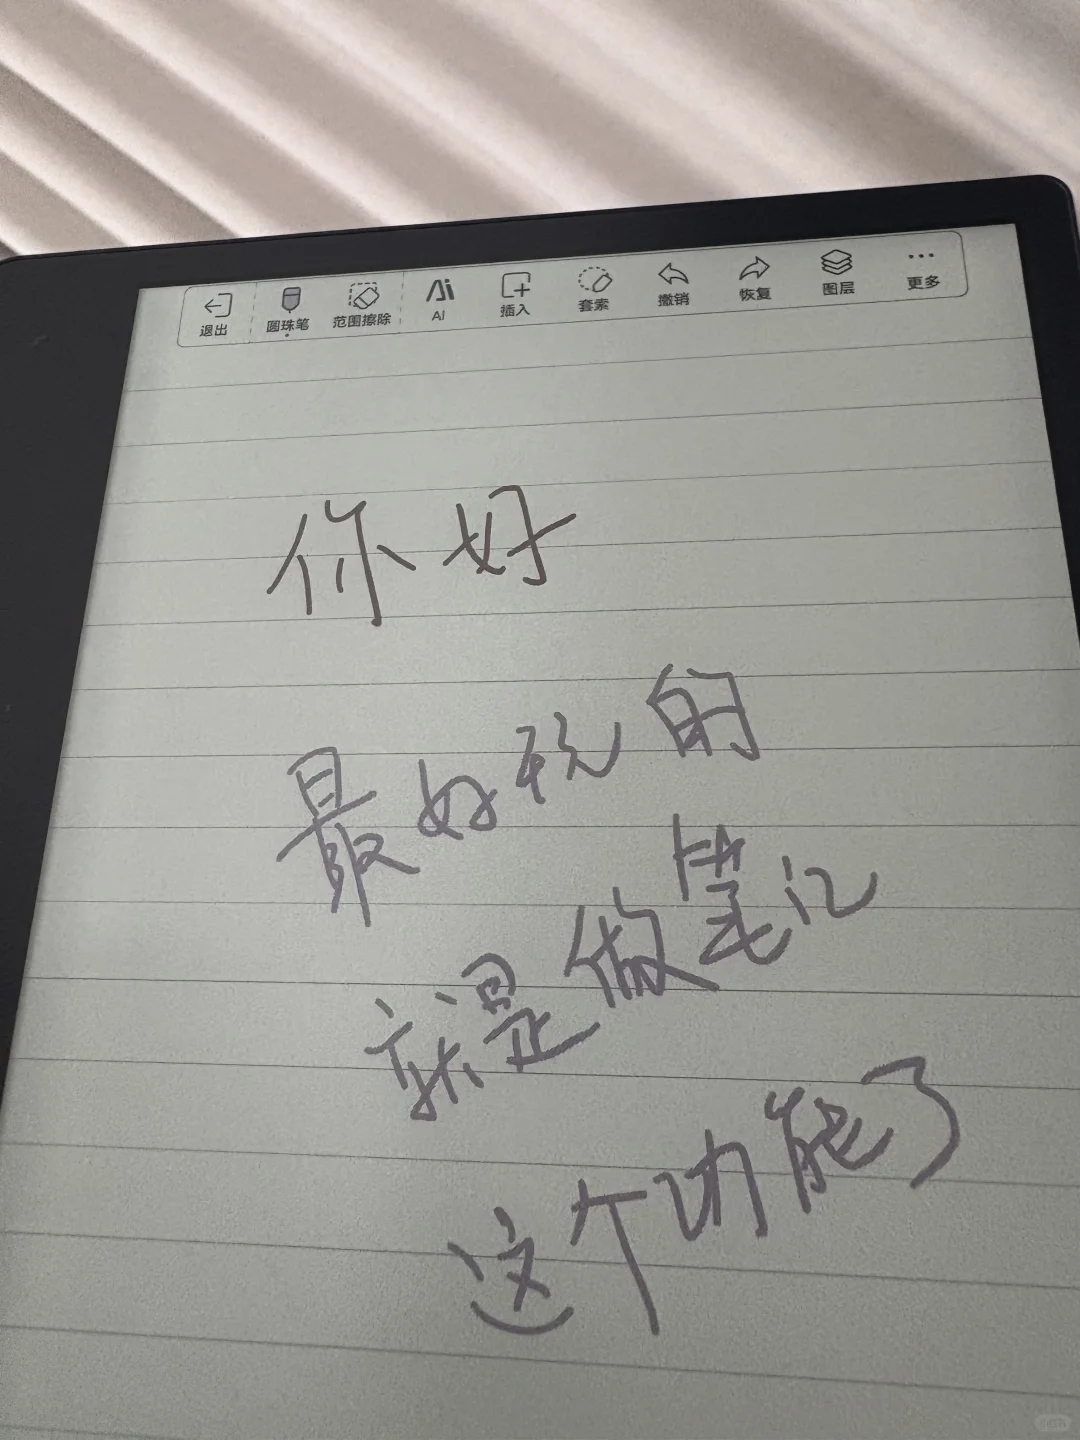 退出 圆珠笔 范围擦除 AI 插入 套索 撤销 恢复 图层 更多
你好
最好玩的
就是做笔记
这个功能了